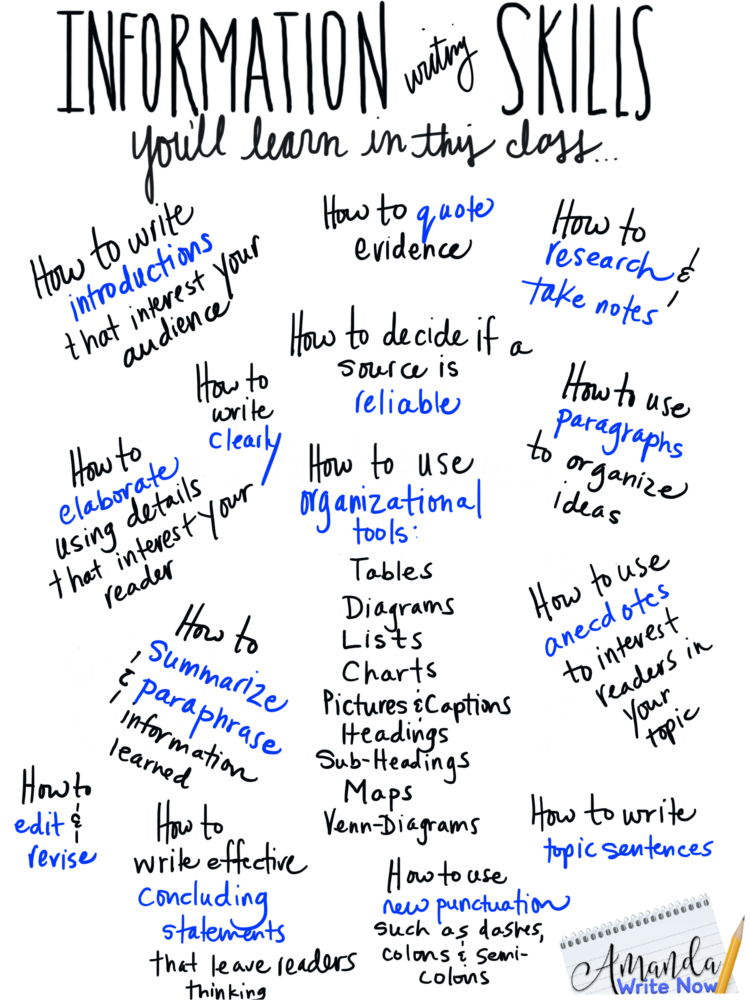 INFORMATION writing SKILLS
you'll learn in this class...
How to write
introductions
that interest your
audience
How to quote
evidence
How to
research &
take notes
How to decide if a
source is
reliable
How to
write
clearly
How to use
paragraphs
to organize
ideas
How to
elaborate
using details
that interest your
reader
How to use
organizational
tools:
Tables
Diagrams
Lists
Charts
Pictures & Captions
Headings
Sub-Headings
Maps
Venn-Diagrams
How to use
anecdotes
to interest
readers in
your
topic
How to
summarize
& paraphrase
information
learned
How to
edit &
revise
How to
write effective
concluding
statements
that leave readers
thinking
How to use
new punctuation
such as dashes,
colons & semi-
colons
How to write
topic sentences
Amanda
Write Now